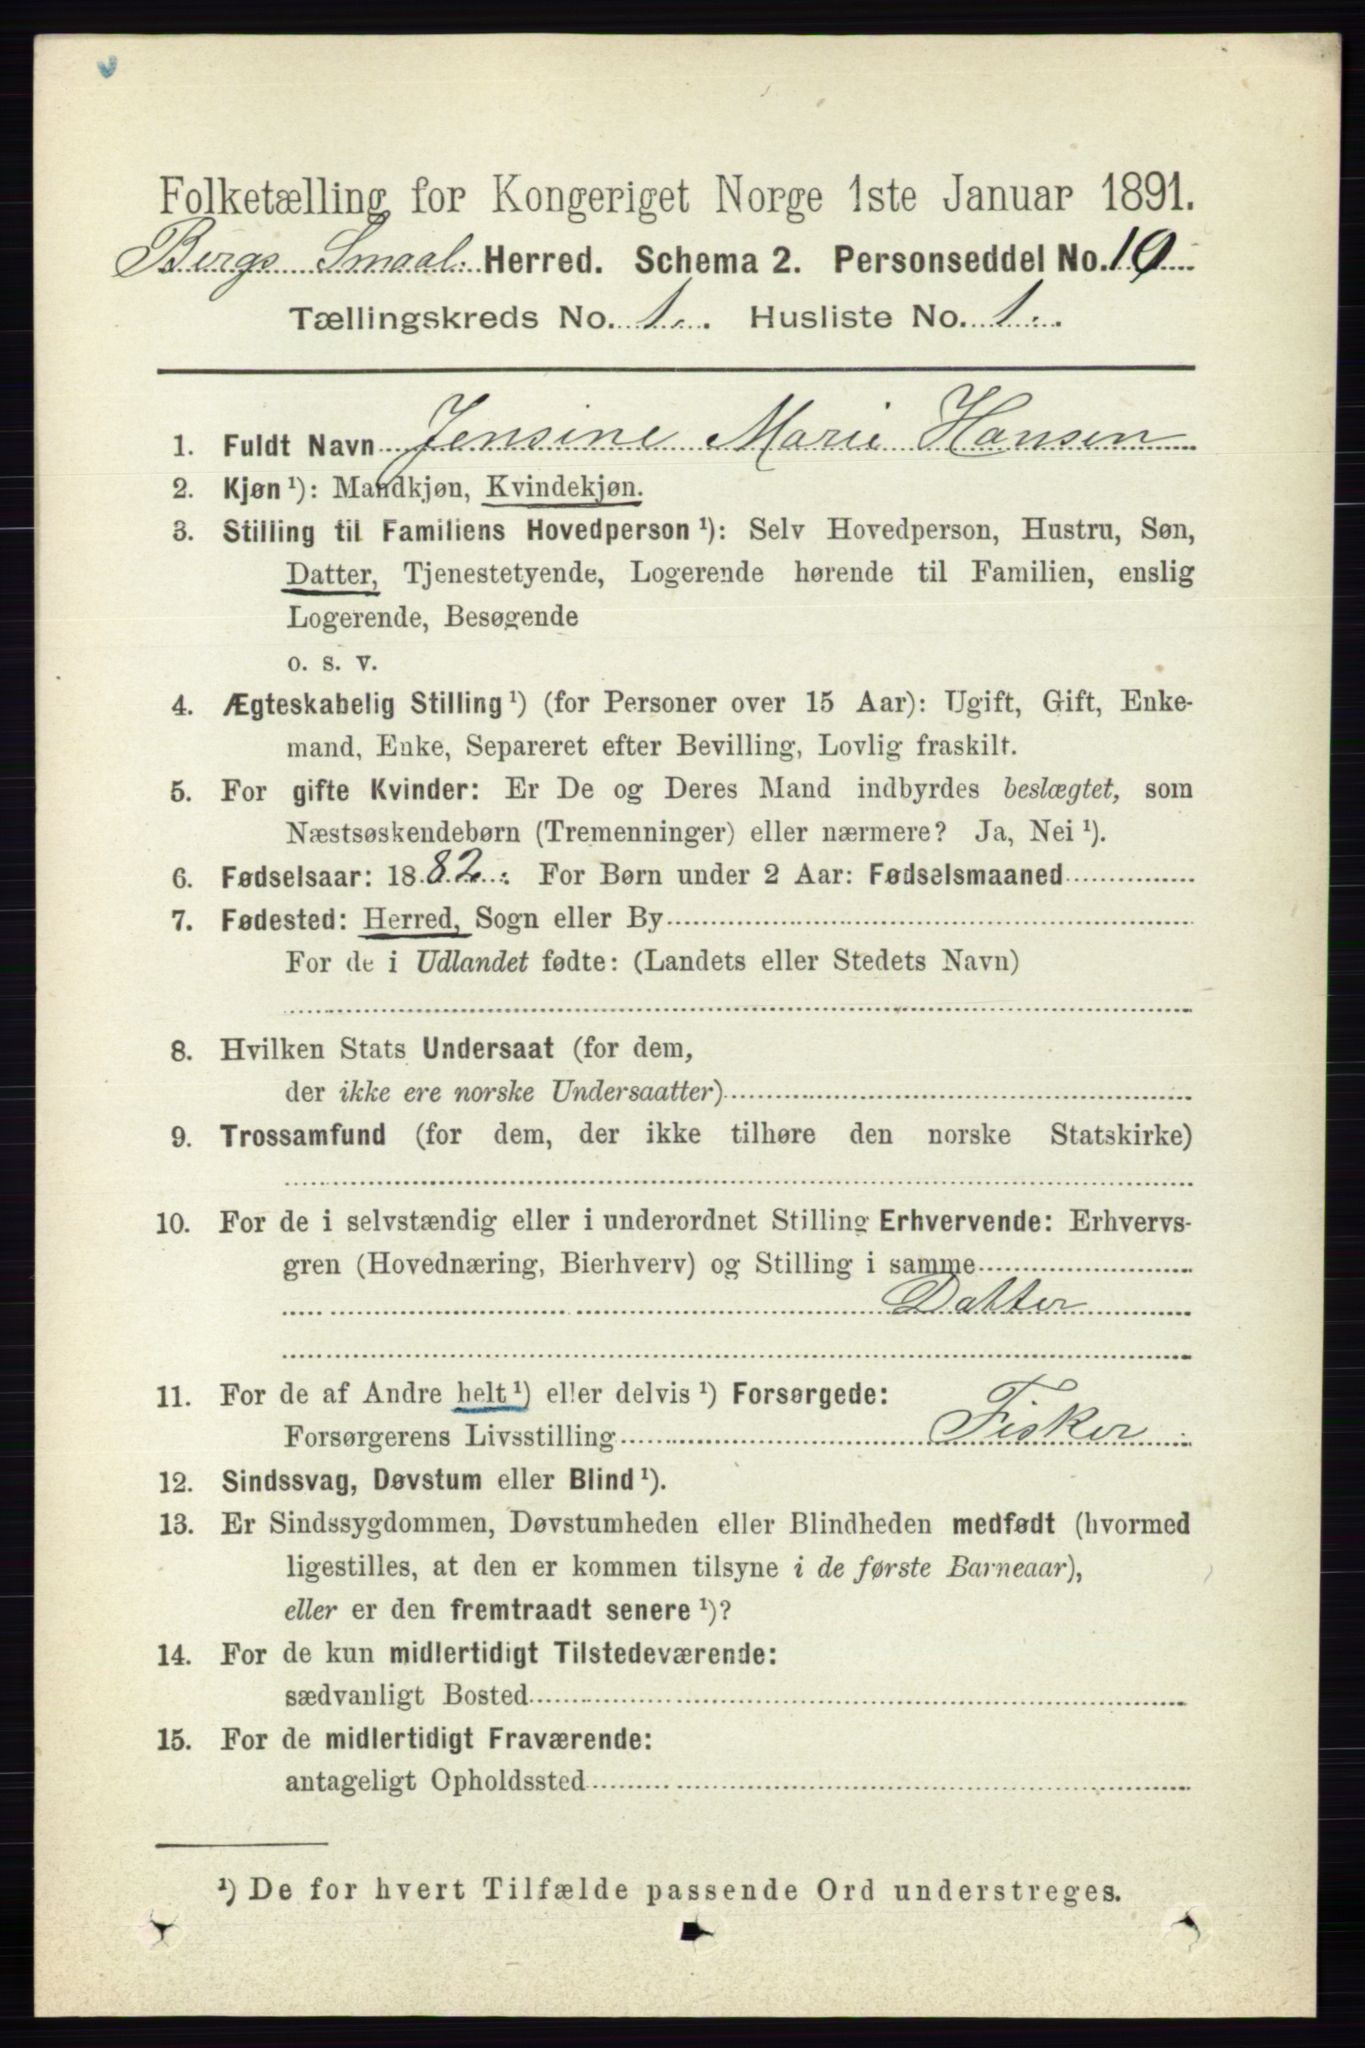 Folketælling for Kongeriget Norge 1ste Januar 1891.
Bergs Smaal. Herred. Schema 2. Personseddel No. 19
Tællingskreds No. 1. Husliste No. 1.
1. Fuldt Navn Jensine Marie Hansen
2. Kjøn ¹): Mandkjøn, Kvindekjøn.
3. Stilling til Familiens Hovedperson ¹): Selv Hovedperson, Hustru, Søn,
Datter, Tjenestetyende, Logerende hørende til Familien, enslig
Logerende, Besøgende
o. s. v.
4. Ægteskabelig Stilling ¹) (for Personer over 15 Aar): Ugift, Gift, Enke-
mand, Enke, Separeret efter Bevilling, Lovlig fraskilt.
5. For gifte Kvinder: Er De og Deres Mand indbyrdes beslægtet, som
Næstsøskendebørn (Tremenninger) eller nærmere? Ja, Nei ¹).
6. Fødselsaar: 1882. For Børn under 2 Aar: Fødselsmaaned
7. Fødested: Herred, Sogn eller By
For de i Udlandet fødte: (Landets eller Stedets Navn)
8. Hvilken Stats Undersaat (for dem,
der ikke ere norske Undersaatter)
9. Trossamfund (for dem, der ikke tilhøre den norske Statskirke)
10. For de i selvstændig eller i underordnet Stilling Erhvervende: Erhvervs-
gren (Hovednæring, Bierhverv) og Stilling i samme
Datter
11. For de af Andre helt ¹) eller delvis ¹) Forsørgede:
Forsørgerens Livsstilling Fisker
12. Sindssvag, Døvstum eller Blind ¹).
13. Er Sindssygdommen, Døvstumheden eller Blindheden medfødt (hvormed
ligestilles, at den er kommen tilsyne i de første Barneaar),
eller er den fremtraadt senere ¹)?
14. For de kun midlertidigt Tilstedeværende:
sædvanligt Bosted
15. For de midlertidigt Fraværende:
antageligt Opholdssted
¹) De for hvert Tilfælde passende Ord understreges.